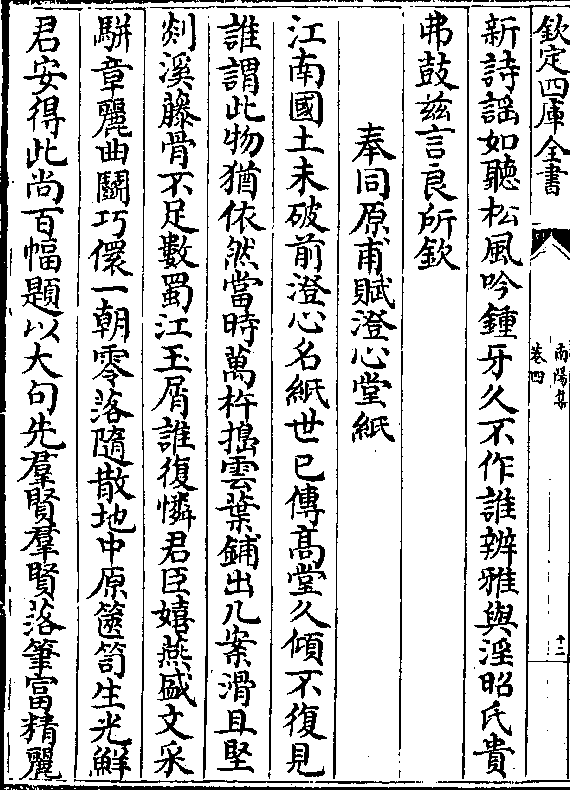 欽定四庫全書
南陽集
卷四
十二
新詩謡如聽松風吟鍾牙久不作誰辨雅與淫昭氏貴
弗鼓兹言良所欽
奉同原甫賦澄心堂紙
江南國土未破前澄心名紙世已傳髙堂久傾不復見
誰謂此物猶依然當時萬杵搗雲葉鋪出几案滑且堅
剡溪藤骨不足數蜀江玉屑誰復憐君臣嬉燕盛文采
駢章麗曲鬭巧儇一朝零落隨散地中原篋笥生光鮮
君安得此尚百幅題以大句先羣賢羣賢落筆富精麗